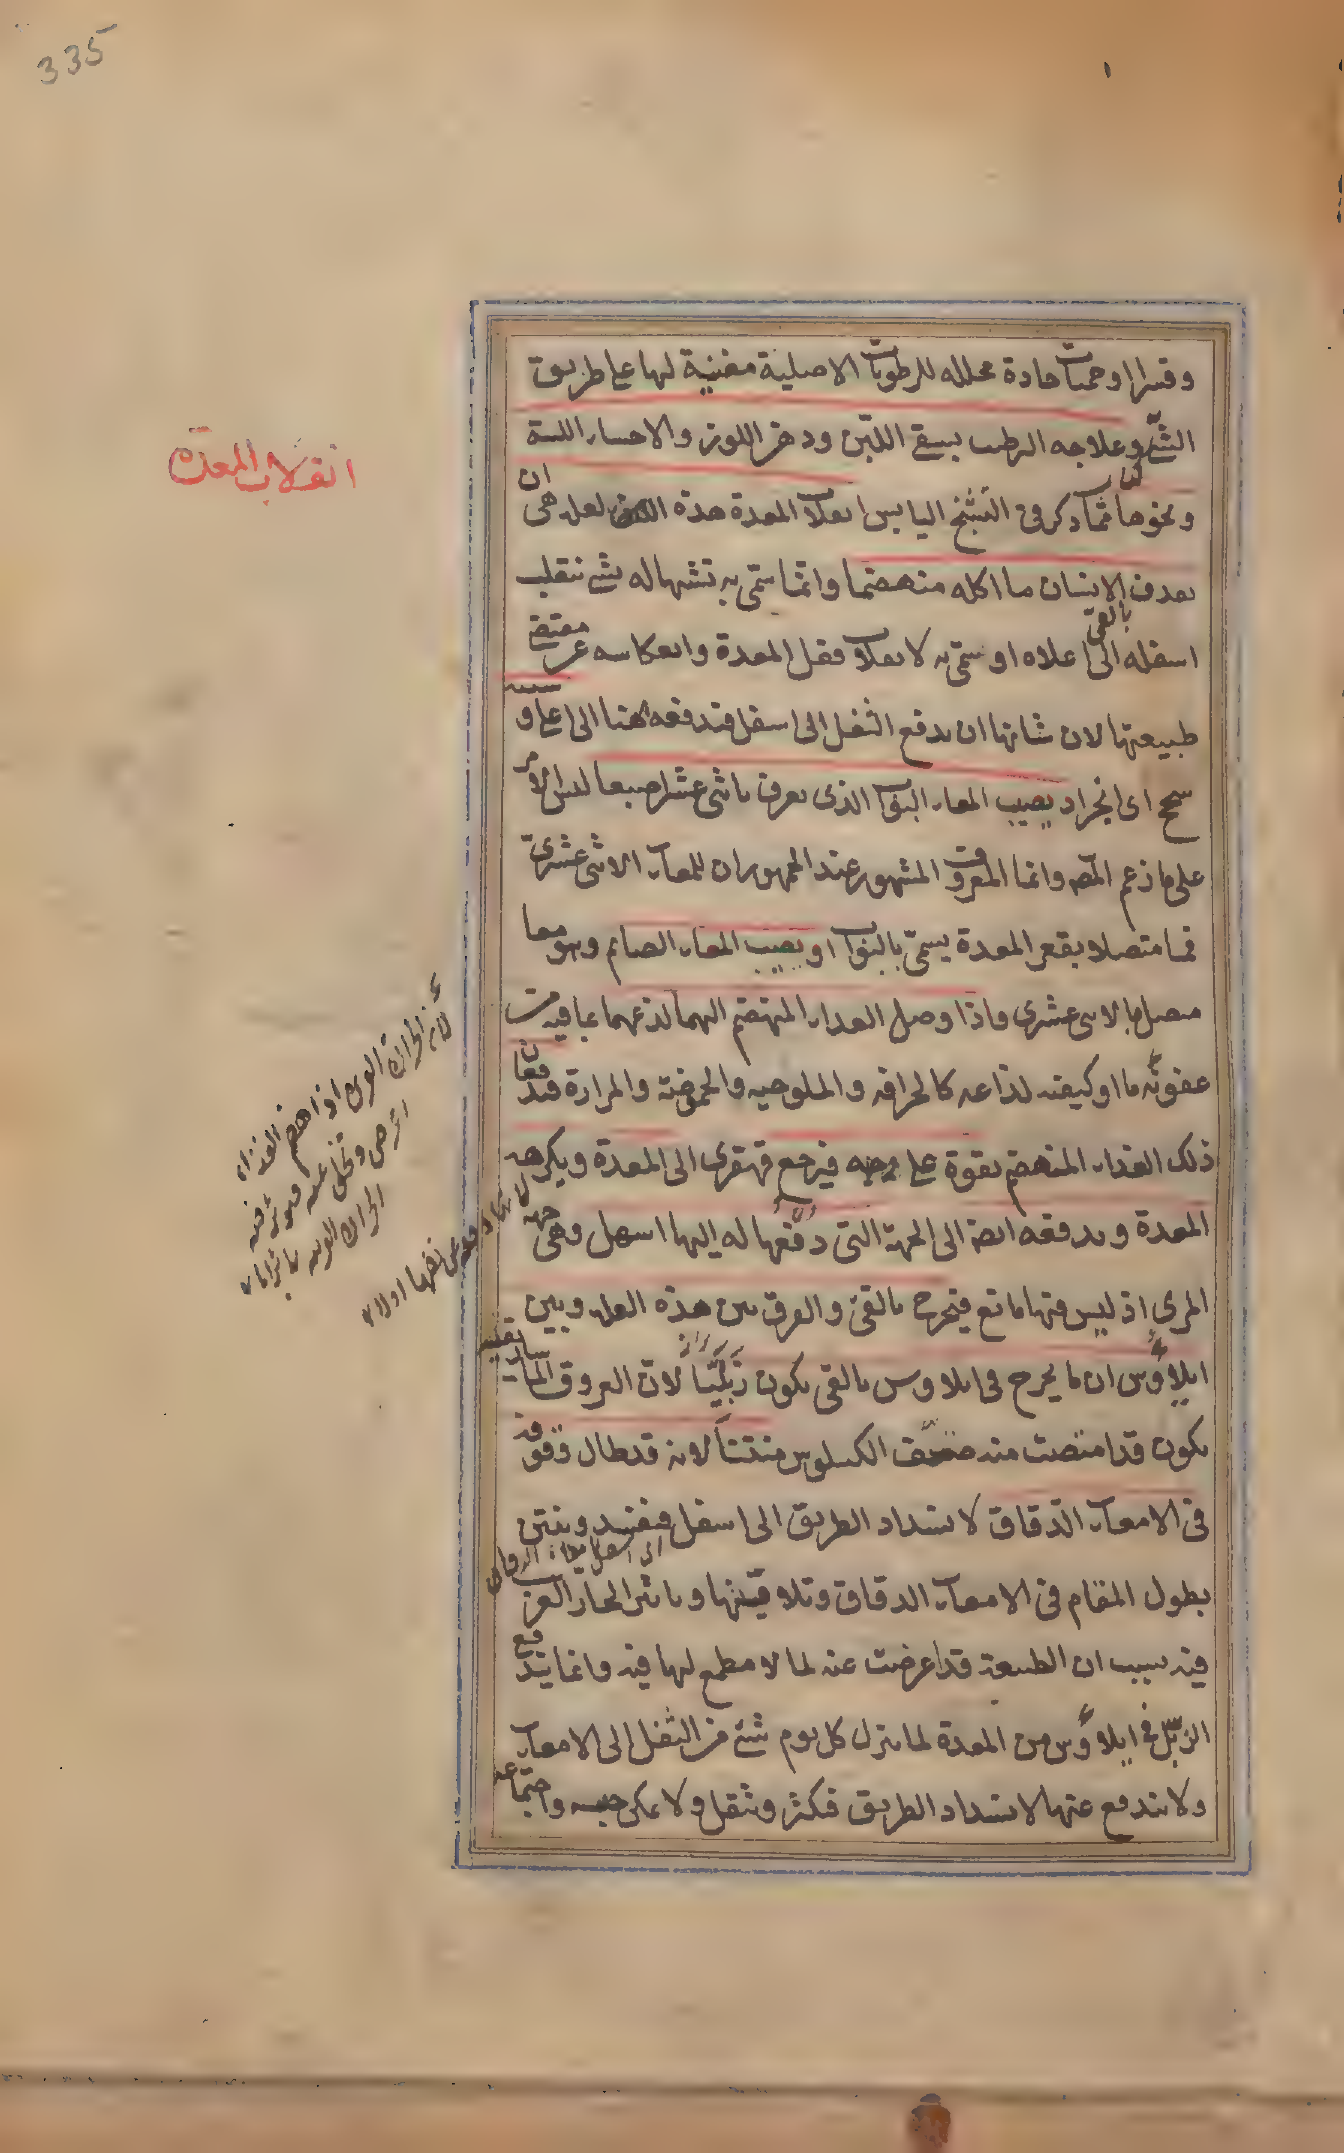 335
وقسرا او حميات حادة محللة للرطوبات الاصلية مفنية لها على طريق
التشنج وعلاجه الترطيب بسقى اللبن ودهن اللوز والاحساء اللينة
ونحوها مما ذكر فى التشنج اليابس انقلاب المعدة هذه العلة هى ان
انقلاب المعدة
يقذف الانسان ما اكله منهضما وانما سمى به تشبيها له بشئ ينقلب
بالقئ
اسفله الى اعلاه او سمى به لانقلاب فعل المعدة وانعكاسه عن مقتضى
طبيعتها لان شانها ان يدفع الثفل الى اسفل فتدفعه هنا الى اعلى و
سببه
سحج اى انجراد يصيب المعاء البواب الذى يعرف باثنى عشر اصبعا ليس الامر
على ما زعم المصـ وانما المعروف المشهور عند الجمهور ان للمعاء الاثنى عشرى
فما متصلا بقعر المعدة يسمى بالبواب او يصيب المعاء الصايم وهو معا
متصل بالاثنى عشرى فاذا وصل الغداء المنهضم اليهما لذعهما بما فيه من
عفونة ما او كيفية لذاعة كالحرافة والملوحة والحموضة والمرارة فيدفعان
ذلك الغداء المنهضم بقوة على وجهه فيرجع قهقرى الى المعدة ويكرهه
المعدة ويدفعه ايضا الى الجهة التى دفعها له اليها اسهل وهى جهة
المرى اذ ليس فيها مانع فيخرج بالقئ والفرق بين هذه العلة وبين
ايلاؤس ان ما يخرج فى ايلاوس بالقى يكون زبليا لان العروق الماساريقية
يكون قد امتصت منه صفو الكيلوس منتنا لانه قد طال وقوفه
فى الامعاء الدقاق لانسداد الطريق الى اسفل فيفسد وينتن
بطول المقام فى الامعاء الدقاق وتلافيفها وتاثير الحار الغريب
فيه بسبب ان الطبيعة قد اعرضت عنه لما لا مطمع لها فيه وانما يندفع
الزبل فى ايلاؤس من المعدة لما ينزل كل يوم شئ من الثفل الى الامعاء
ولا يندفع عنها لانسداد الطريق فكثر وثقل ولا يمكن حبسه واجتماعه